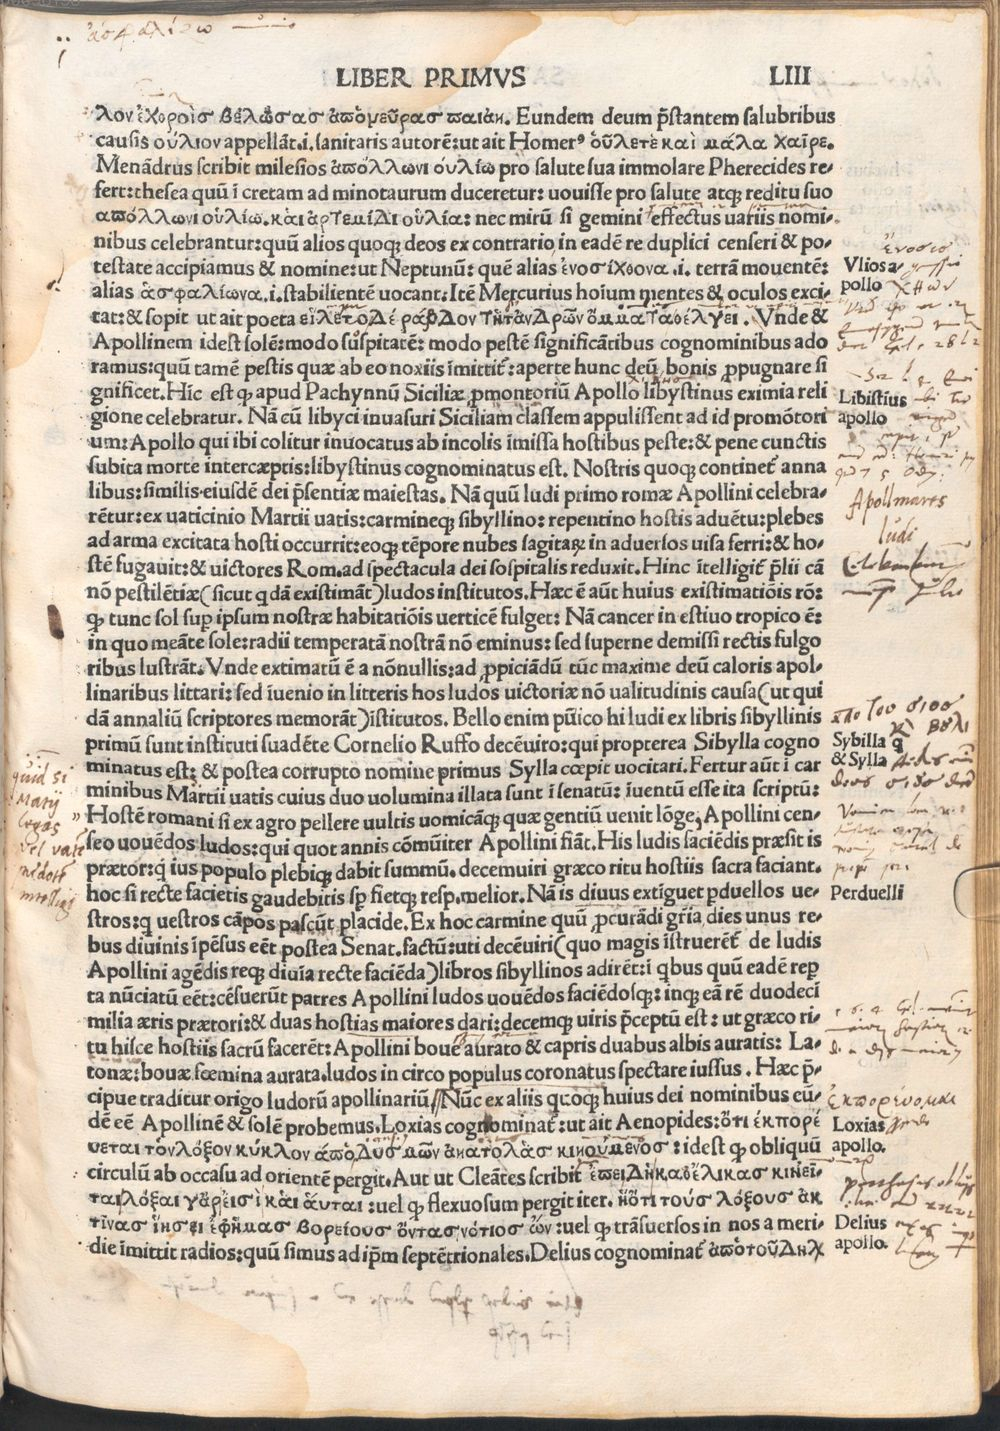 ἀσφαλίζω
LIBER PRIMVS
LIII
λον ἐχθροῖσ βέλωσασ ἀπὸμεῦρασ παιάν. Eundem deum p̄stantem salubribus
causis οὔλιον appellāt.i. sanitaris autorē:ut ait Homerꝰ οὖλετὲ καὶ μάλα χαῖρε.
Menādrus scribit milesios ἀπόλλωνι οὐλίω pro salute sua immolare Pherecides re-
fert:thesea quū ī cretam ad minotaurum duceretur: uouisse pro salute atq; reditu suo
ἀπόλλωνι οὐλίω. καὶ ἀρτεμίδι οὐλία: nec mirū si gemini effectus uariis nomi-
nibus celebrantur:quū alios quoq; deos ex contrario in eadē re duplici censeri & po-
testate accipiamus & nomine: ut Neptunū: quē alias ἐνοσίχθονα .i. terrā mouentē:
alias ἀσφαλίωνα .i. stabilientē uocant. Itē Mercurius hoīum mentes & oculos exci-
tat: & sopit ut ait poeta εἵλετο δὲ ράβδον τῆ τἀνδρῶν ὄμματα θέλγει . Vnde &
Apollinem idest solē: modo sūspitatē: modo pestē significātibus cognominibus ado
ramus: quū tamē pestis quæ ab eo noxiis īmittit̄: aperte hunc deū bonis ꝓpugnare si
gnificet. Hic est q̱ apud Pachynnū Siciliæ ꝓmontoriū Apollo libystinus eximia reli
gione celebratur. Nā cū libyci inuasuri Siciliam classem appulissent ad id promōtori
um: Apollo qui ibi colitur inuocatus ab incolis īmissa hostibus peste: & pene cunctis
subita morte intercæptis: libystinus cognominatus est. Nostris quoq; continet̄ anna
libus: similis eiusdē dei p̄sentiæ maiestas. Nā quū ludi primo romæ Apollini celebra-
rētur: ex uaticinio Martii uatis: carmineq; sibyllino: repentino hostis aduētu: plebes
ad arma excitata hosti occurrit: eoq; tēpore nubes sagitaꝝ in aduersos uisa ferri: & ho-
stē fugauit: & uictores Rom. ad spectacula dei sospitalis reduxit. Hinc ītelligit̄ p̄lii cā
nō pestilētiæ (sicut q̇dā existimāt) ludos institutos. Hæc ē aūt huius existimatiōis rō:
q̱ tunc sol suꝑ ipsum nostræ habitatiōis uerticē fulget: Nā cancer in estiuo tropico ē:
in quo meāte sole: radii temperatā nostrā nō eminus: sed superne demissi rectis fulgo
ribus lustrāt. Vnde extimatū ē a nōnullis: ad ꝓpiciādū tūc maxime deū caloris apol-
linaribus littari: sed īuenio in litteris hos ludos uictoriæ nō ualitudinis causa (ut qui
dā annaliū scriptores memorāt) īstitutos. Bello enim pūico hi ludi ex libris sibyllinis
primū sunt instituti suadēte Cornelio Ruffo decēuiro: qui propterea Sibylla cogno
minatus est: & postea corrupto nomine primus Sylla cœpit uocitari. Fertur aūt ī car
minibus Martii uatis cuius duo uolumina illata sunt ī senatū: īuentū esse ita scriptū:
Hostē romani si ex agro pellere uultis uomicāq; quæ gentiū uenit lōge, Apollini cen-
seo uouēdos ludos: qui quot annis cōmūiter Apollini fiāt. His ludis faciēdis præsit is
prætor: q̇ ius populo plebiq; dabit summū. decemuiri græco ritu hostiis sacra faciant.
hoc si recte facietis gaudebitis sꝑ fietq; resp. melior. Nā is diuus extīguet ꝑduellos ue-
stros: q̇ uestros cāpos pascūt placide. Ex hoc carmine quū ꝓcurādi gr̄ia dies unus re-
bus diuinis īpēsus eēt postea Senat. factū: uti decēuiri (quo magis īstruerēt̄ de ludis
Apollini agēdis req; diuīa recte faciēda) libros sibyllinos adirēt: ī q̇bus quū eadē reꝑ
ta nūciatū eēt: cēsuerūt patres Apollini ludos uouēdos faciēdosq;: inq; eā rē duodecī
milia æris prætori: & duas hostias maiores dari: decemq; uiris p̄ceptū est: ut græco ri-
tu hisce hostiis sacrū facerēt: Apollini boue aurato & capris duabus albis auratis: La-
tonæ: bouæ fœmina aurata. ludos in circo populus coronatus spectare iussus. Hæc p̄-
cipue traditur origo ludorū apollinariū// Nūc ex aliis quoq; huius dei nominibus eū-
dē eē Apollinē & solē probemus. Loxias cognominat̄: ut ait Aenopides: ὅτι ἐκπορέ
υεται τὸν λόξον κύκλον ἀπὸ δυσμῶν ἀνατολὰσ κινούμενος: idest q̱ obliquū
circulū ab occasu ad orientē pergit. Aut ut Cleātes scribit ἐπειδὴ καθέλικασ κινεῖ-
ται λόξαι γὰρ εἰσὶ καὶ ἅυται: uel q̱ flexuosum pergit iter. ἢ ὅτι τοὺς λόξους ἀκ
τῖνας ἵησει ἐφῆμας βορείους ὄντασ νότιος ὤν: uel q̱ trāsuersos in nos a meri-
die īmittit radios: quū simus ad ip̄m septētrionales. Delius cognominat̄ ἀπὸ τοῦ δηλ
Vlios a-
pollo
Libistius
apollo
Apollinares
ludi
Sybilla q̄
& Sylla
Perduelli
ἐκπορεύομαι
Loxias
apollo.
Delius
apollo.
quid si
Marij
legas
vel vate